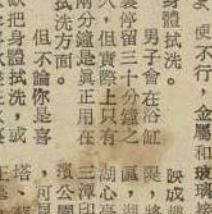 便不行，金屬和玻璃接
身體拭洗。
男子會在浴缸
裏停留三十分鐘之
久，但實際上只有
兩分鐘是眞正用在
拭洗方面。
但不論你是喜
歡把身體拭洗，或
映成
限，將
區，湖
湖心亭
三潭印
濱公園
，可
塔、